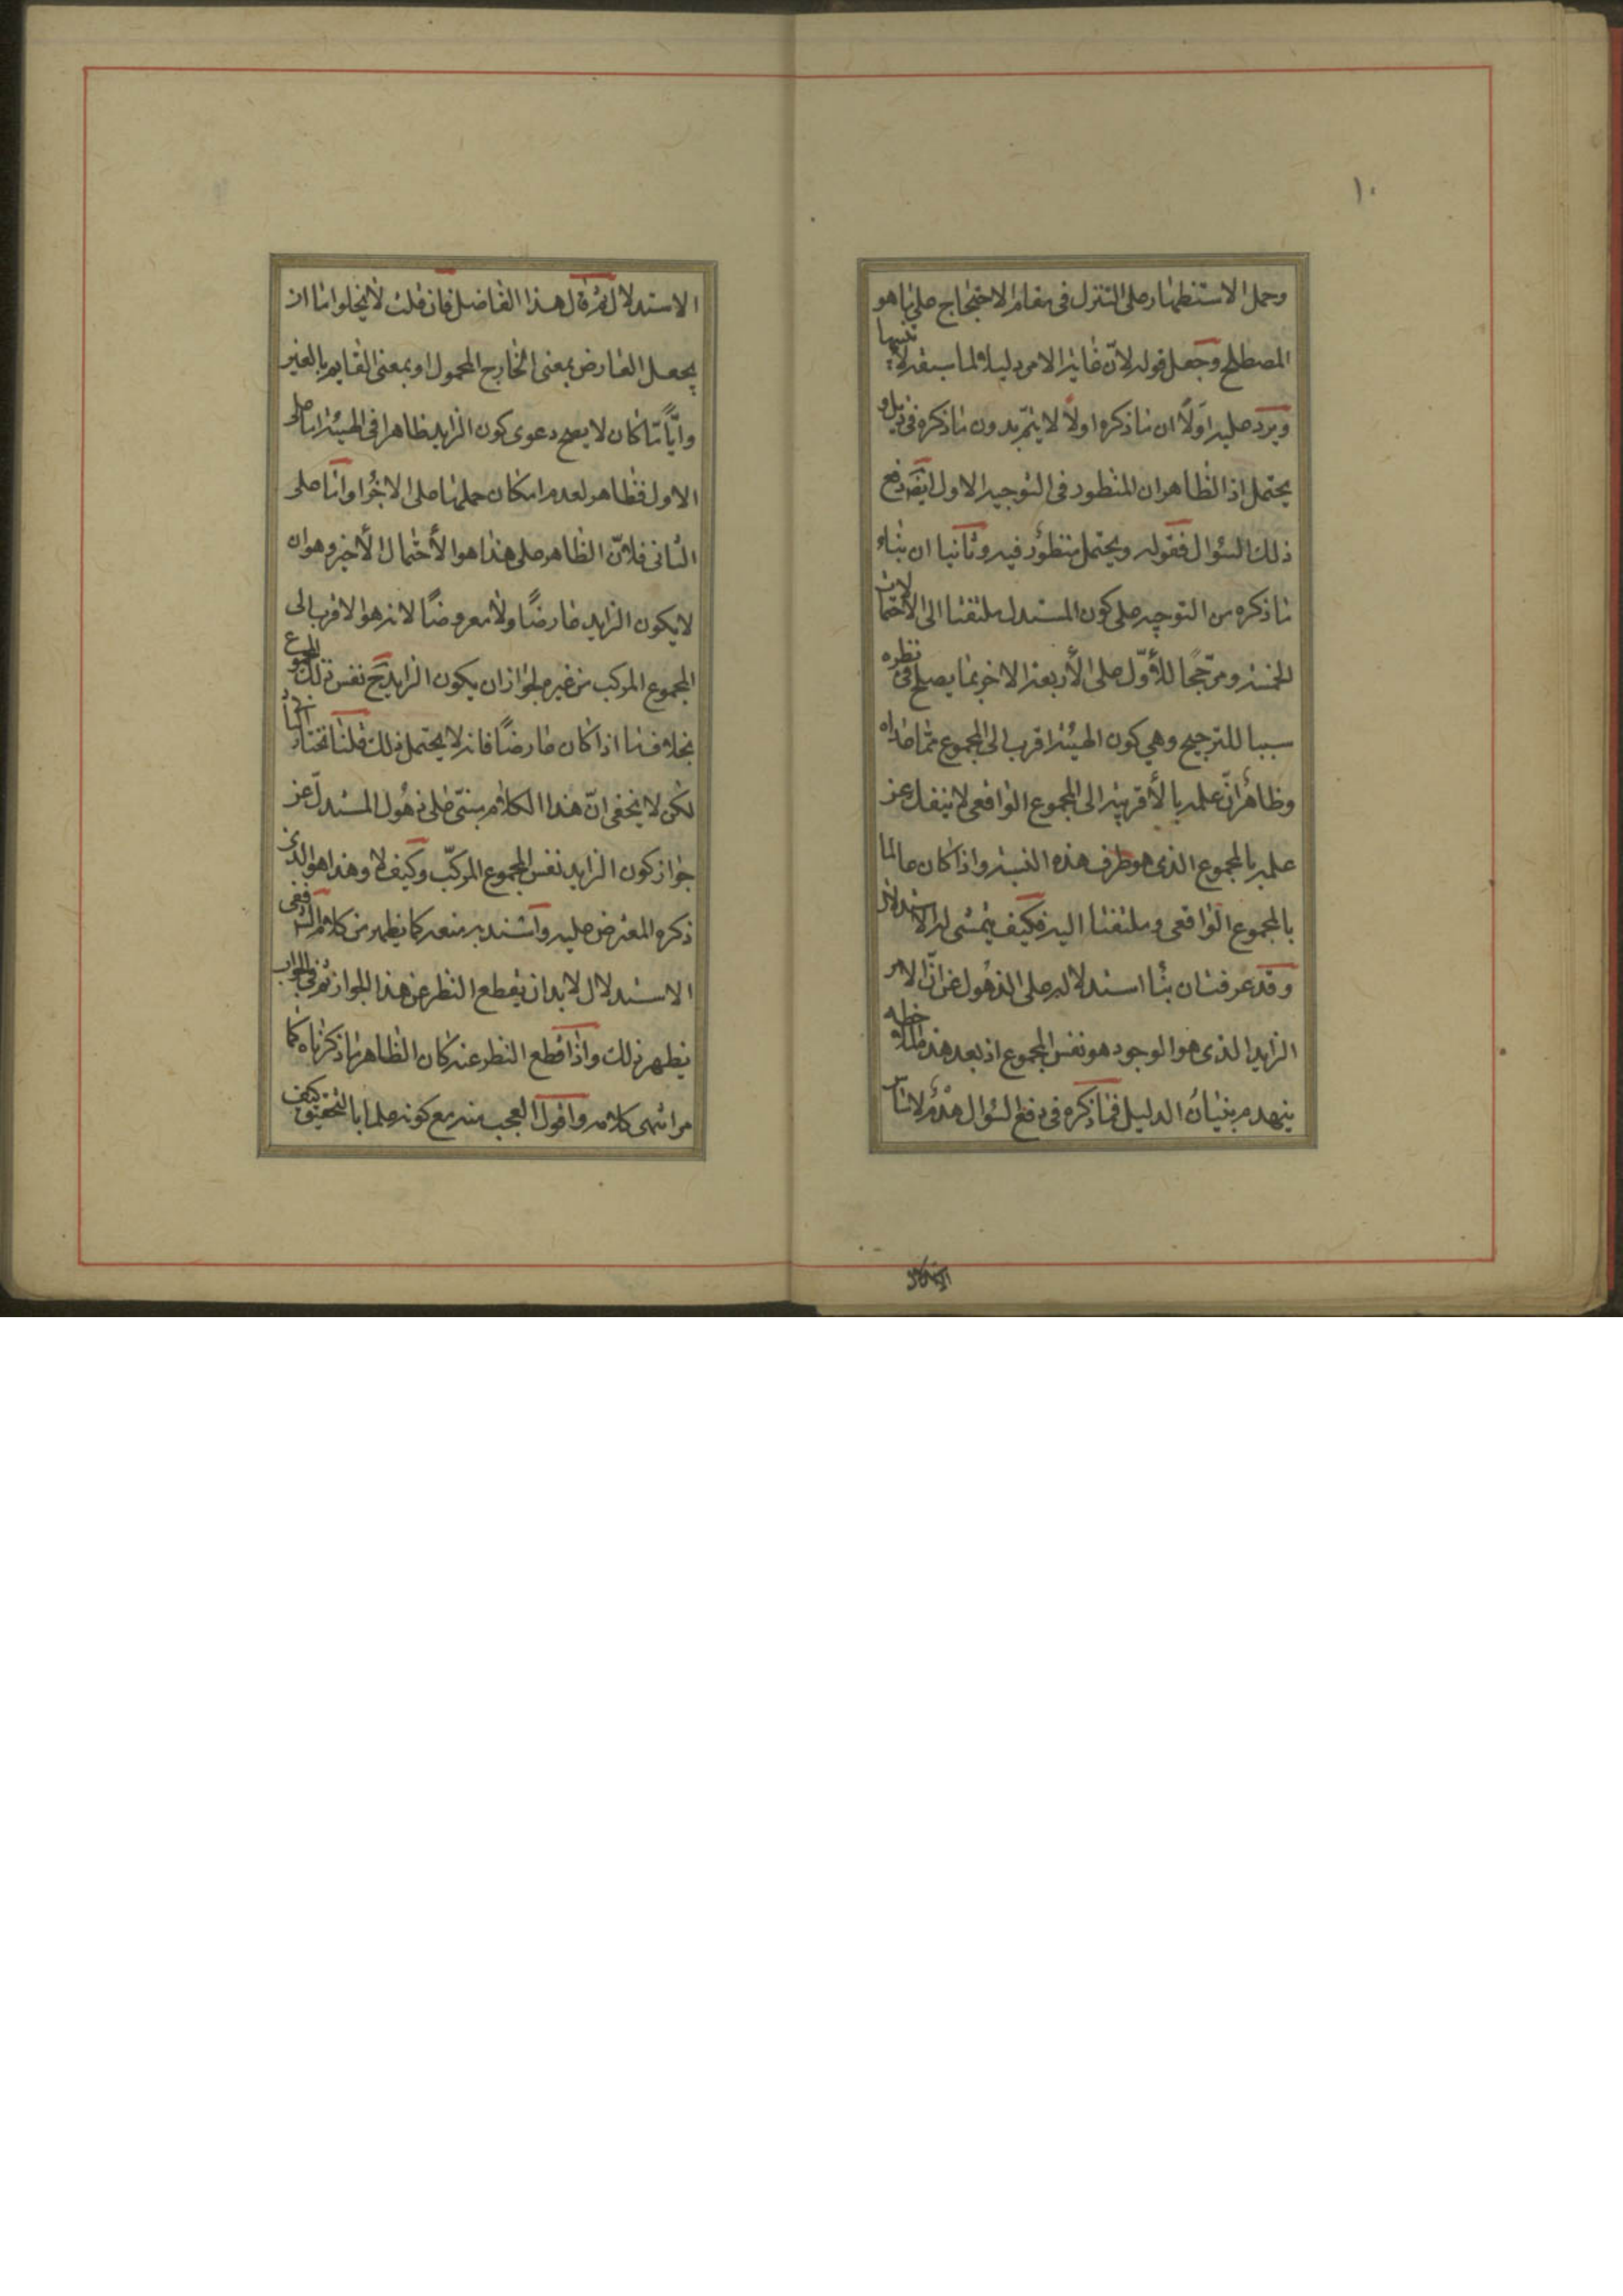 ١٠
وحمل الاستظهار على التنزل فى مقام الاحتجاج على ما هو
المصطلح وجعل قوله لانّ غاية الامر دليلا لما سبقه لا تنبيها
ويرد عليه اوّلًا ان ما ذكره اولًا لا يتمّ بدون ما ذكره فى ذيل و
يحتمل اذ الظاهر ان المنظور فى التوجيه الاول ايضه دفع
ذلك السئوال فقوله ويحتمل منظور فيه وثانيا ان بناء
ما ذكره من التوجيه على كون المستدل ملتفتا الى الاحتمالات
الخمسة ومرّجحًا للأوّل على الأربعة الاخر بما يصلح فى نظره
سببا للترجيح وهى كون الهيئة اقرب الى المجموع ممّا عداه
وظاهر انّ علمه بالأقربية الى المجموع الواقعى لا ينفك عن
علمه بالمجموع الذى هو طرف هذه النسبة واذا كان عالما
بالمجموع الواقعى وملتفتا اليه فكيف يتمشى له الاستدلال
وقد عرفت ان بناء استدلاله على الذهول عن انّ الامر
الزايد الذى هو الوجود هو نفس المجموع اذ بعد هذه الملاحظه
ينهدم بنيان الدليل فما ذكره فى دفع السئوال هدم لاساس
الاستدلال
الاستدلال ثم قال هذا الفاضل فان قلت لا يخلوا اما ان
يجعل العارض بمعنى الخارج المحمول او بمعنى القايم بالغير
وايًّا ما كان لا يصح دعوى كون الزايد ظاهرا فى الهيئة اما على
الاول فظاهر لعدم امكان حملها على الاجزاء واما على
الثانى فلانّ الظاهر على هذا هو الأحتمال الأخير وهو ان
لا يكون الزايد عارضًا ولا معروضًا لانه هو الاقرب الى
المجموع المركب من غيره لجواز ان يكون الزايد ح نفس ذلك المجموع
بخلاف ما اذا كان عارضًا فانه لا يحتمل ذلك قلنا نختار الثانى
لكن لا يخفى انّ هذا الكلام مبنىّ على ذهول المستدلّ عن
جواز كون الزايد نفس المجموع المركّب وكيف لا وهذا هو الذى
ذكره المعترض عليه واستند به منعه كما يظهر من كلام الش ففى
الاستدلال لا بد ان يقطع النظر عن هذا الجواز ثم فى الجواب
يظهر ذلك واذا قطع النظر عنه كان الظاهر ما ذكرناه كما
مر انتهى كلامه واقول العجب منه مع كونه علما بالتحقيق كيف